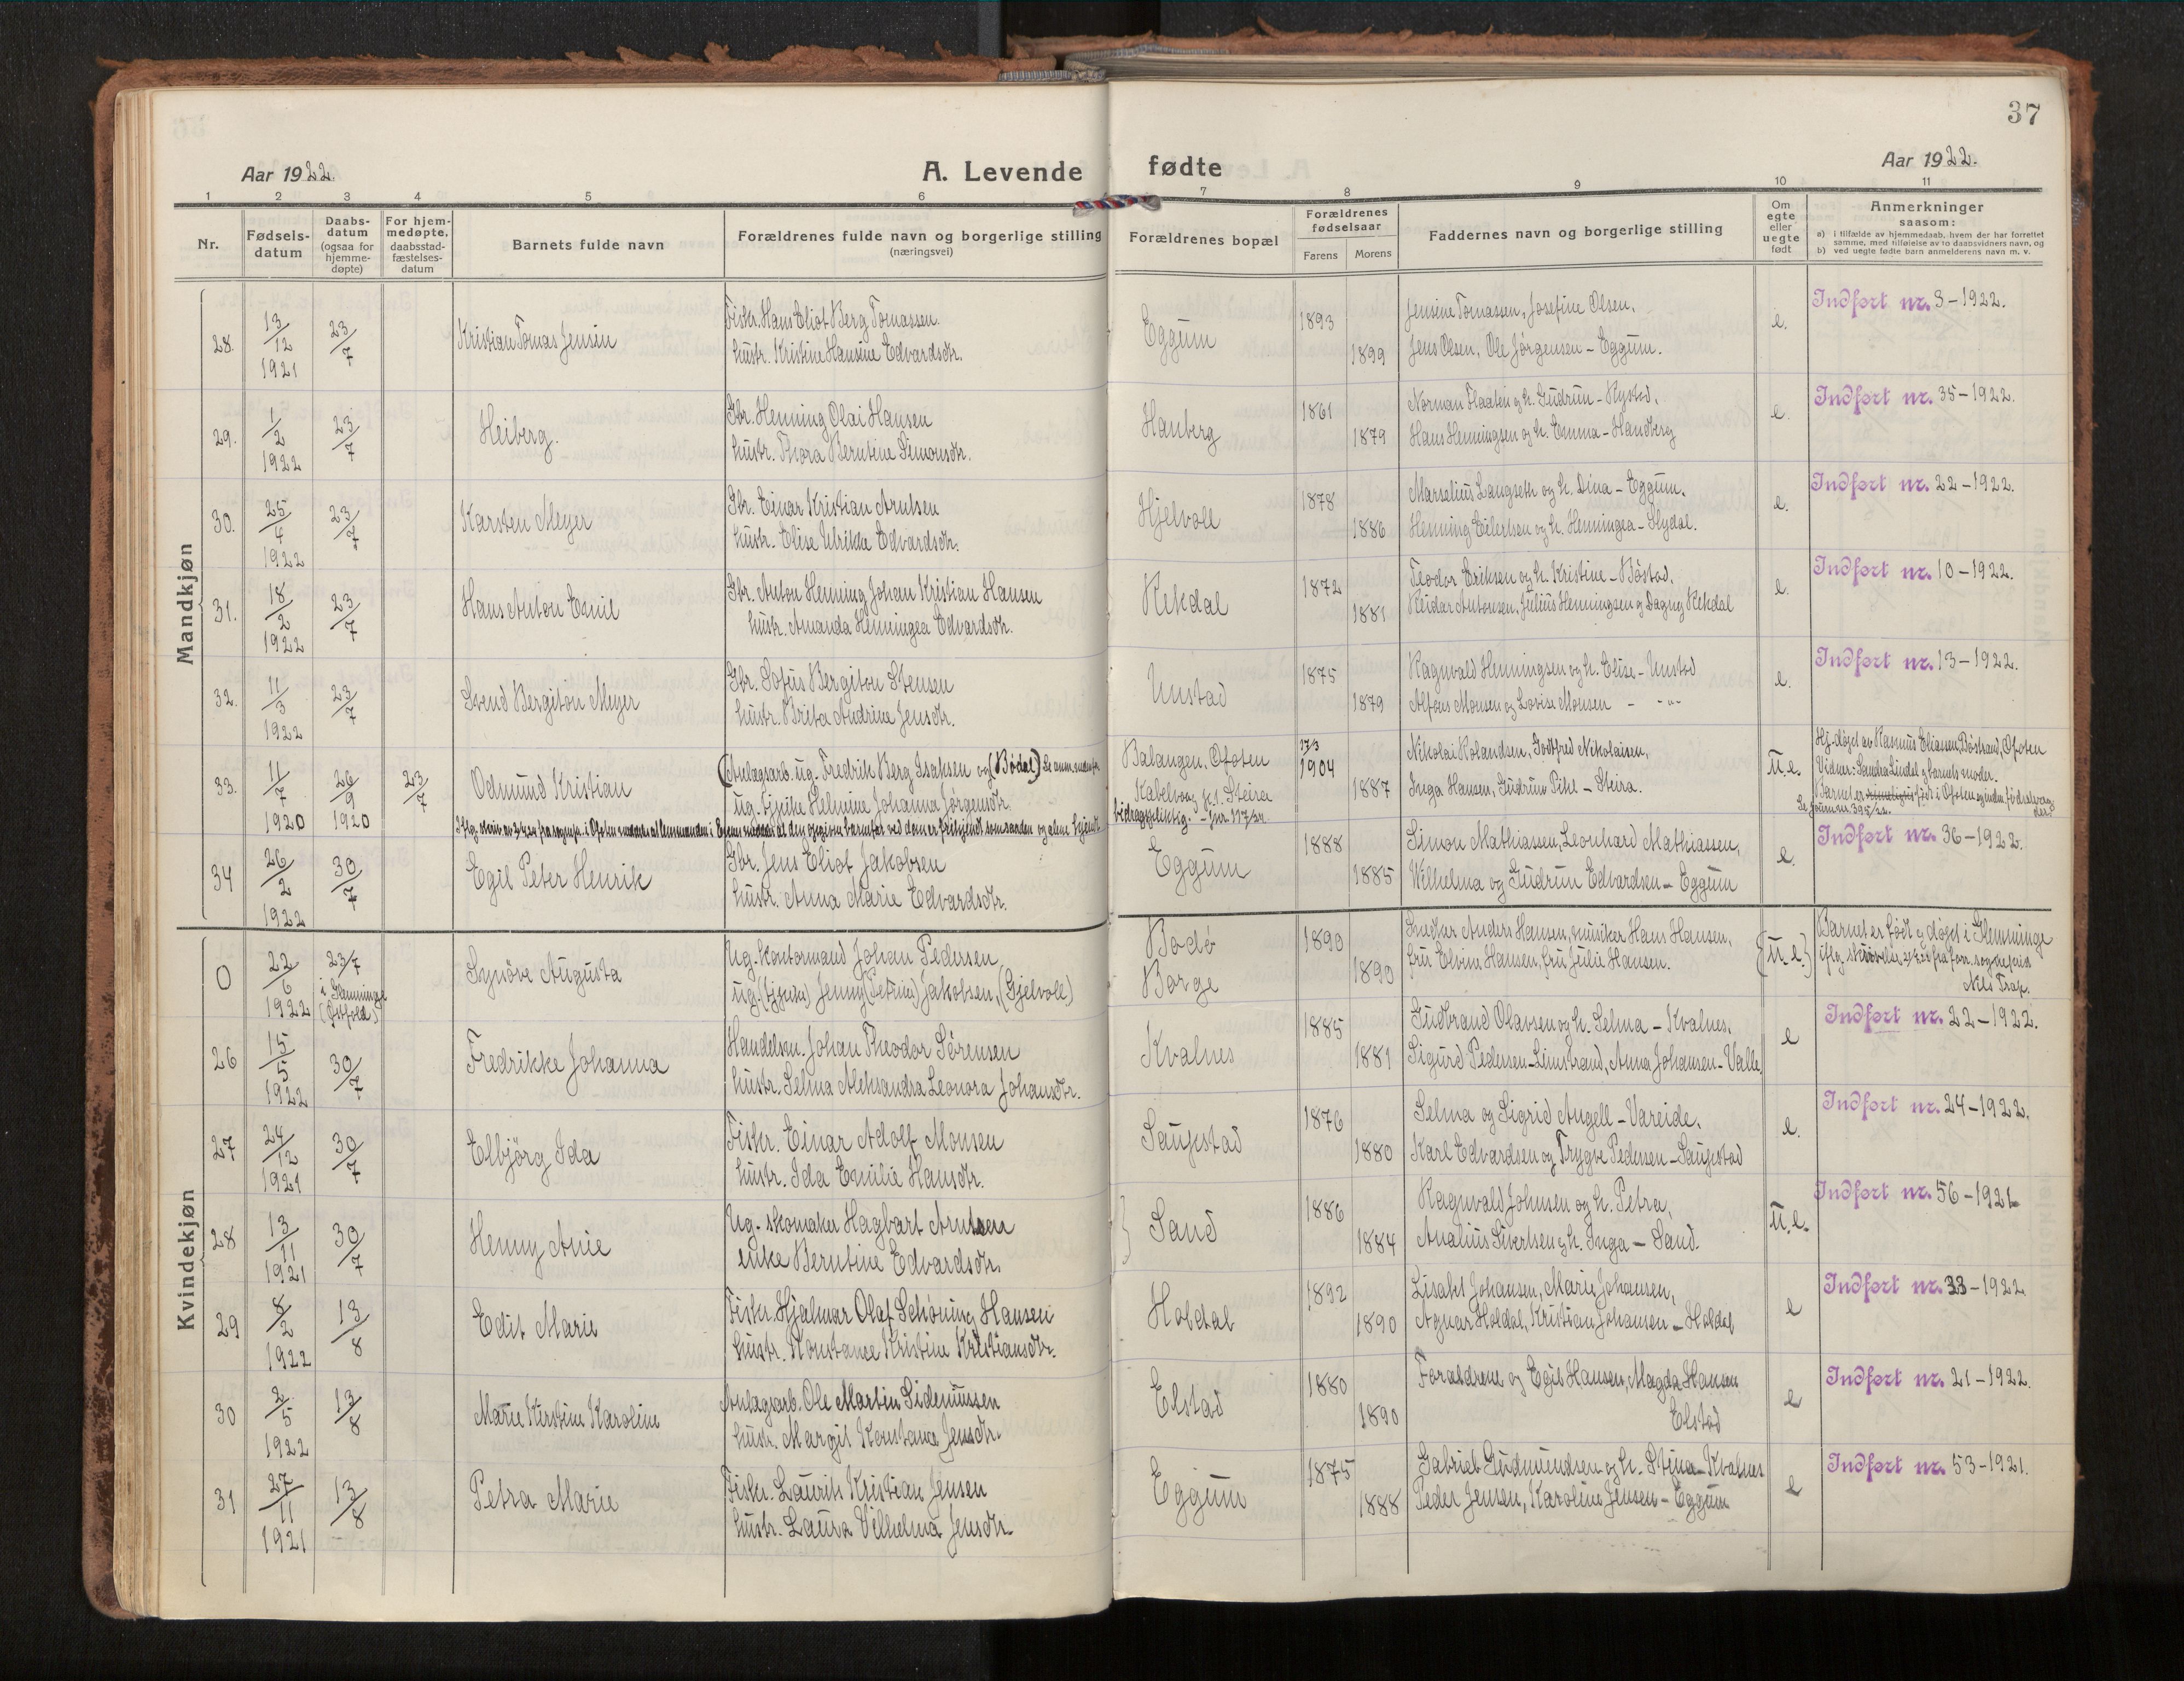 37
Aar 1922.
A. Levende fødte
Aar 1922.
1 2 3 4 5 6 7 8 9 10 11
Nr.
Fødsels-datum
Daabs-datum (ogsaa for hjemme-døpte)
For hjem-medøpte, daabsstad-fæstelses-datum
Barnets fulde navn
Forældrenes fulde navn og borgerlige stilling (næringsvei)
Forældrenes bopæl
Forældrenes fødselsaar
Farens Morens
Faddernes navn og borgerlige stilling
Om egte eller uegte født
Anmerkninger saasom:
a) i tilfælde av hjemmedaab, hvem der har forrettet samme, med tilføielse av to daabsvidners navn, og
b) ved uegte fødte barn anmelderens navn m. v.
Mandkjøn
28. 13/12 1921 23/7 Kristian Tomas Jensin Fisker. Hans Eliot Berg Tomassen. Eggum 1893 Jensine Tomassen, Josefine Olsen, e. Indført nr. 3-1922.
hustr. Kristine Hansine Edvardsdtr. 1899 Jens Olsen, Ole Jørgensen - Eggum.
29. 1/2 1922 23/7 Heiberg. Gbr. Henning Olai Hansen Hanberg 1861 Norman Flaaten og h. Gudrun - Rystad, e. Indført nr. 35-1922.
hustr. Thora Berntine Simonsdtr. 1879 Hans Henningsen og h. Emma - Handberg
30. 25/4 1922 23/7 Karsten Meyer Gbr. Einar Kristian Arntsen Hjelvoll 1878 Marselius Langseth og h. Dina - Eggum. e. Indført nr. 22-1922.
hustr. Elise Ulrikke Edvardsdtr. 1886 Henning Eilertsen og h. Henningea - Slydal.
31. 18/2 1922 23/7 Hans Anton Emil Gbr. Anton Henning Johan Kristian Hansen Rekdal 1872 Teodor Eriksen og h. Kristine - Bøstad, e. Indført nr. 10-1922.
hustr. Amanda Henningea Edvardsdtr. 1881 Reidar Antonsen, Julius Henningsen og Dagny Rekdal
32. 11/3 1922 23/7 Svend Bergiton Meyer Gbr. Sofus Bergiton Stensen Unstad 1875 Ragnvald Henningsen og h. Elise - Unstad e. Indført nr. 13-1922.
hustr. Brita Andrine Jensdtr. 1879 Alfons Monsen og Lovise Monsen - -"-
33. 11/7 1920 26/9 1920 23/7 Odmund Kristian (Anlægsarb. ug. Fredrik Berg Isaksen og (Bødal) Balangen, Ofoten 27/3 1904 Nikolai Rolandsen, Godtfred Nikolaisen, u.e. Hj.døpt av Rasmus Eliassen, Bøstrand, Ofoten
ug. tjpike Helmine Johanna Jørgensdtr. Kabelvaag p.t. Steira 1887 Inga Hansen, Gudrun Pihl - Steira. Vidner: Sandra Lindal og barnets moder.
bidragspliktig. - Jnr. 117/22
34 26/2 1922 30/7 Egil Peter Henrik Gbr. Jens Eliot Jakobsen Eggum 1888 Simon Mathiassen, Leonhard Mathiassen, e. Indført nr. 36-1922.
hustr. Anna Marie Edvardsdtr. 1885 Wilhelma og Gudrun Edvardsen - Eggum
Kvindekjøn
0 22/6 1922 23/7 i Glemminge (Østfold) Synöve Augusta Ug. Kontormand Johan Pedersen Bodø 1890 Snedker Anders Hansen, musiker Hans Hansen, (u.e.) Barnet er født og døpt i Glemminge
ug. (tjpike) Jenny (Petrine) Jakobsen, (Gjelvoll) Borge 1890 fru Elvine Hansen, fru Julie Hansen. Nils Trap.
26 15/5 1922 30/7 Fredrikke Johanna Handelsm. Johan Theodor Sörensen Kvalnes 1885 Gudbrand Olavsen og h. Selma - Kvalnes, e Indført nr. 22-1922.
hustr. Selma Aleksandra Leonora Johansdtr. 1881 Sigurd Pedersen - Leinstrand, Anna Johansen - Valle
27 24/12 1921 30/7 Elbjörg Ida Fisker. Einar Adolf Monsen Saupstad 1876 Selma og Sigrid Angell - Vareide, e. Indført nr. 24-1922.
hustr. Ida Emilie Hansdtr. 1880 Karl Edvardsen og Trygve Pedersen - Saupstad
28 13/11 1921 30/7 Henny Anie Ug. skomaker Hagbart Arntsen Sand 1886 Ragnvald Johnsen og h. Petra, u.e. Indført nr. 56-1921
enke Berntine Edvardsdtr. 1884 Analius Sivertsen og h. Inga - Sand.
29 8/2 1922 13/8 Edit Marie Fisker. Hjalmar Olaf Schöning Hansen Holdal 1892 Lisabet Johansen, Marie Johansen, e Indført nr. 33-1922
hustr. Konstance Kristine Kristiansdtr. 1890 Agnar Holdal, Kristian Johansen - Holdal
30 2/5 1922 13/8 Marie Kirstine Karoline Anlægsarb. Ole Martin Sidenussen Elstad 1880 Forældrene og Egil Hansen, Magda Hansen e Indført nr. 21-1922.
hustr. Margit Konstance Jensdtr. 1890 Elstad
31 27/11 1921 13/8 Petra Marie Fisker. Laurits Kristian Jensen Eggum 1875 Gabriel Gudmundsen og h. Stina - Kvalnes e Indført nr. 53-1921.
hustr. Laura Vilhelma Jensdtr 1888 Peder Jensen, Karoline Jensen - Eggum